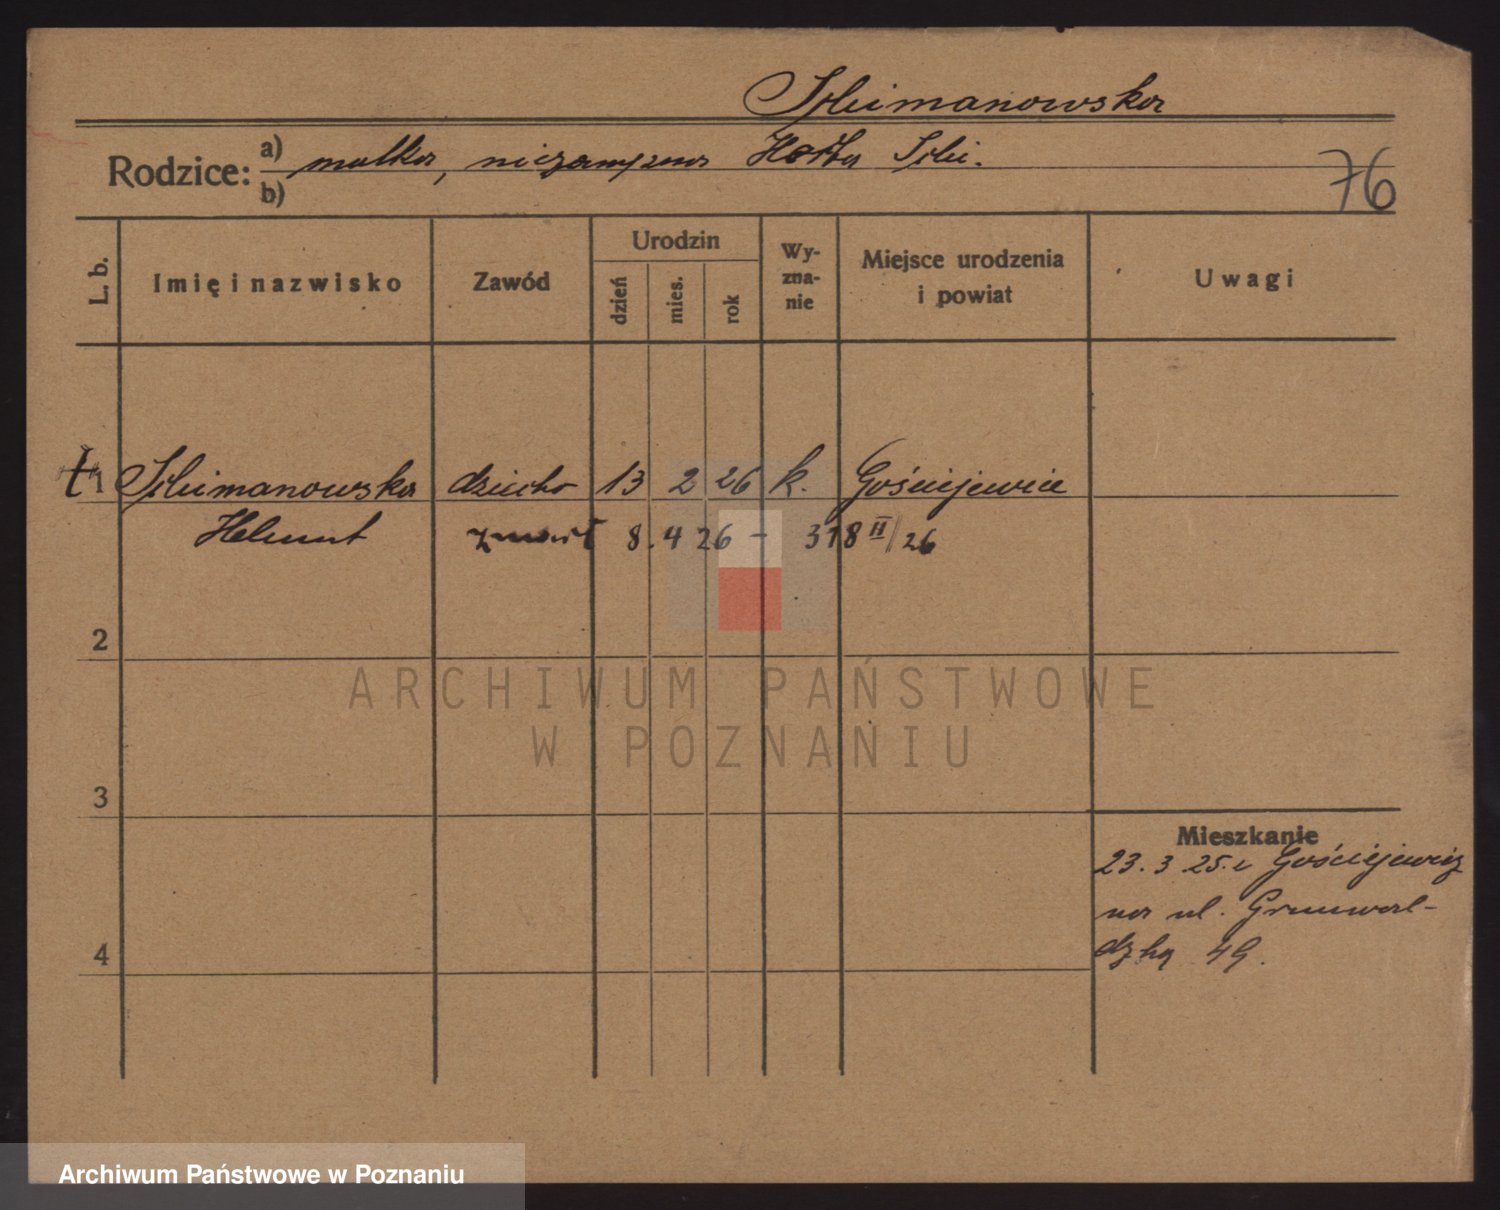 Rodzice:
a) matka, niezamężna
b)
76
L. b.
Imię i nazwisko
Zawód
Urodzin
dzień
mies.
rok
Wy-
zna-
nie
Miejsce urodzenia
i powiat
Uwagi
1 dziecko 13 2 26 k. Gościejewice
Helmut zmarł 8.4 26 - 318 II/26
2
ARCHIWUM PAŃSTWOWE
W POZNANIU
3
Mieszkanie
23.3 25. z Gościejewic
na ul. Grunwal-
dzką 49.
4
Archiwum Państwowe w Poznaniu